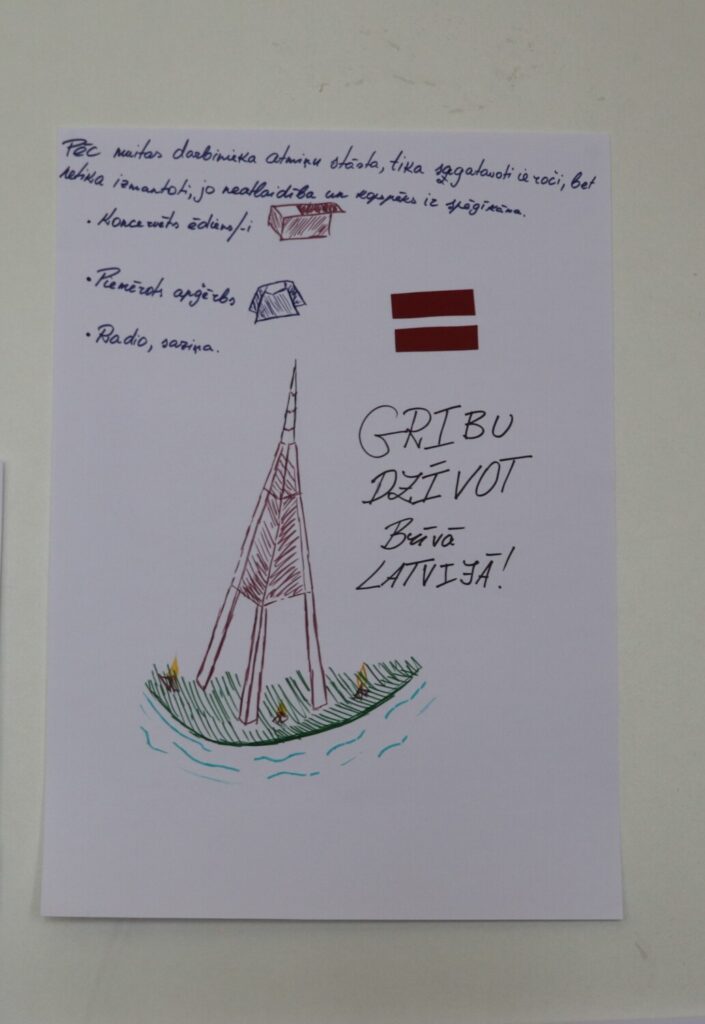 Pēc muitas darbinieka atmiņu stāsta, tika sagatavoti ieroči, bet
netika izmantoti, jo neatlaidība un kopspēks ir spēcīgāks.
• Koncervēts ēdiens/-i
• Piemērots apģērbs
• Radio, saziņa.
GRIBU
DZĪVOT
Brīvā
LATVIJĀ!